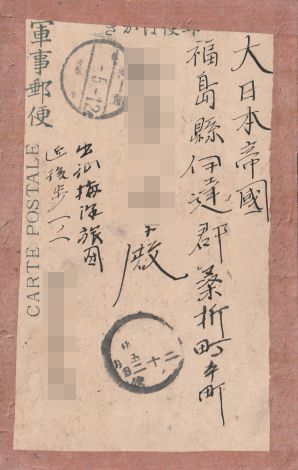 はがき
軍事郵便
CARTE POSTALE
大日本帝國
福島縣伊達郡桑折町本町
殿
出征梅沢旅団
近後歩一ノ一
5-12
二十二日